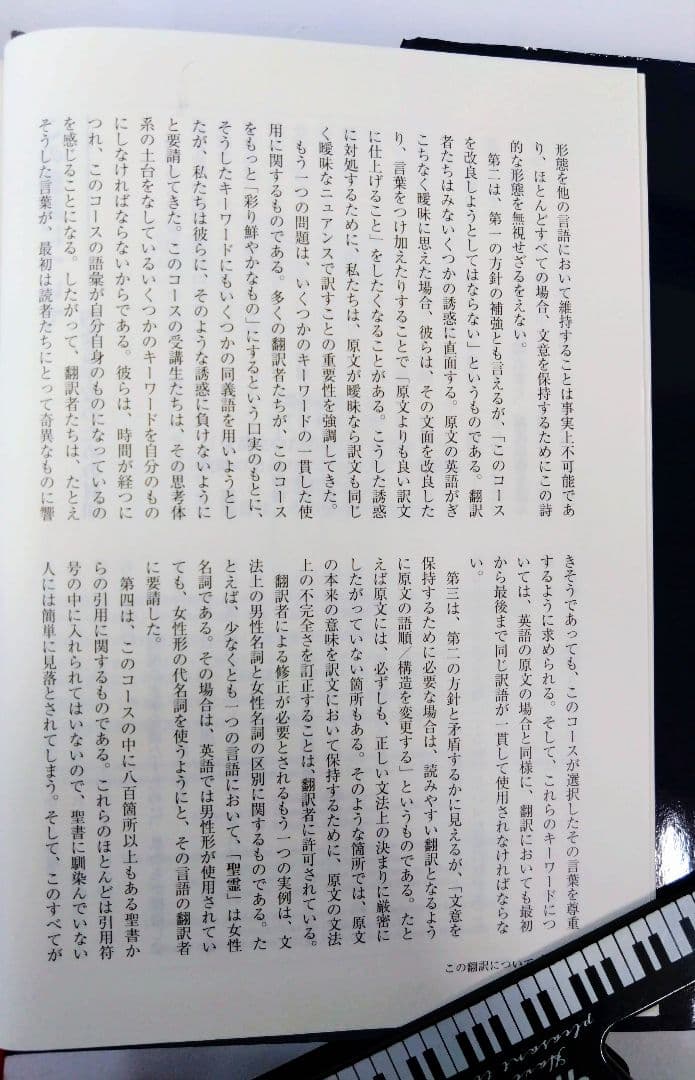 形態を他の言語において維持することは事実上不可能であ
り、ほとんどすべての場合、文意を保持するためにこの詩
的な形態を無視せざるをえない。
第二は、第一の方針の補強とも言えるが、「このコース
を改良しようとしてはならない」というものである。翻訳
者たちはみないくつかの誘惑に直面する。原文の英語がぎ
こちなく曖昧に思えた場合、彼らは、その文面を改良した
り、言葉をつけ加えたりすることで「原文よりも良い訳文
に仕上げること」をしたくなることがある。こうした誘惑
に対処するために、私たちは、原文が曖昧なら訳文も同じ
く曖昧なニュアンスで訳すことの重要性を強調してきた。
もう一つの問題は、いくつかのキーワードの一貫した使
用に関するものである。多くの翻訳者たちが、このコース
をもっと「彩り鮮やかなもの」にするという口実のもとに、
そうしたキーワードにもいくつかの同義語を用いようとし
たが、私たちは彼らに、そのような誘惑に負けないように
と要請してきた。このコースの受講生たちは、その思考体
系の土台をなしているいくつかのキーワードを自分のもの
にしなければならないからである。彼らは、時間が経つに
つれ、このコースの語彙が自分自身のものになっているの
を感じることになる。したがって、翻訳者たちは、たとえ
そうした言葉が、最初は読者たちにとって奇異なものに響
きそうであっても、このコースが選択したその言葉を尊重
するように求められる。そして、これらのキーワードにつ
いては、英語の原文の場合と同様に、翻訳においても最初
から最後まで同じ訳語が一貫して使用されなければならな
い。
第三は、第二の方針と矛盾するかに見えるが、「文意を
保持するために必要な場合は、読みやすい翻訳となるよう
に原文の語順／構造を変更する」というものである。たと
えば原文には、必ずしも、正しい文法上の決まりに厳密に
したがっていない箇所もある。そのような箇所では、原文
の本来の意味を訳文において保持するために、原文の文法
上の不完全さを訂正することは、翻訳者に許可されている。
翻訳者による修正が必要とされるもう一つの実例は、文
法上の男性名詞と女性名詞の区別に関するものである。た
とえば、少なくとも一つの言語において、「聖霊」は女性
名詞である。その場合は、英語では男性形が使用されてい
ても、女性形の代名詞を使うようにと、その言語の翻訳者
に要請した。
第四は、このコースの中に八百箇所以上もある聖書か
らの引用に関するものである。これらのほとんどは引用符
号の中に入れられてはいないので、聖書に馴染んでいない
人には簡単に見落とされてしまう。そして、このすべてが
この翻訳について
Have
pleasant